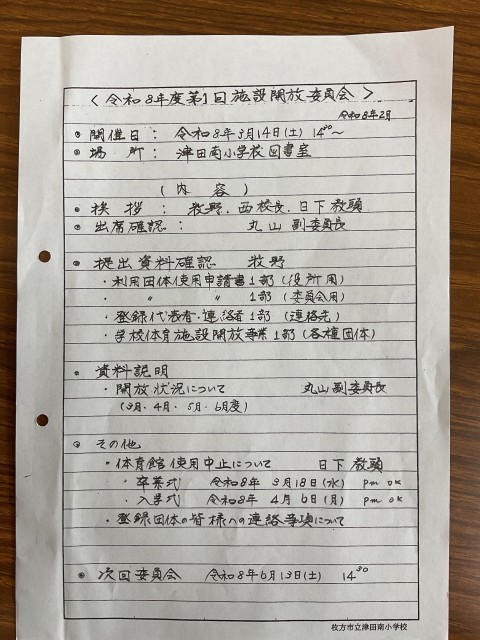 ＜令和8年度第1回施設開放委員会＞
令和8年2月
・開催日： 令和8年3月14日(土) 14:00〜
・場 所： 津田南小学校図書室
(内 容)
・挨 拶： 牧野、西校長、日下教頭
・出席確認： 丸山 副委員長
・提出資料確認 牧野
・利用団体使用申請書1部(役所用)
・ 〃 〃 1部(委員会用)
・登録代表者・連絡者1部(連絡先)
・学校体育施設開放事業1部(各種団体)
・資料説明
・開放状況について 丸山副委員長
(3月・4月・5月・6月度)
・その他
・体育館使用中止について 日下教頭
・卒業式 令和8年 3月18日(水) pm ok
・入学式 令和8年 4月6日(月) pm ok
・登録団体の皆様への連絡事項について
・次回委員会 令和8年6月13日(土) 14:30
枚方市立津田南小学校